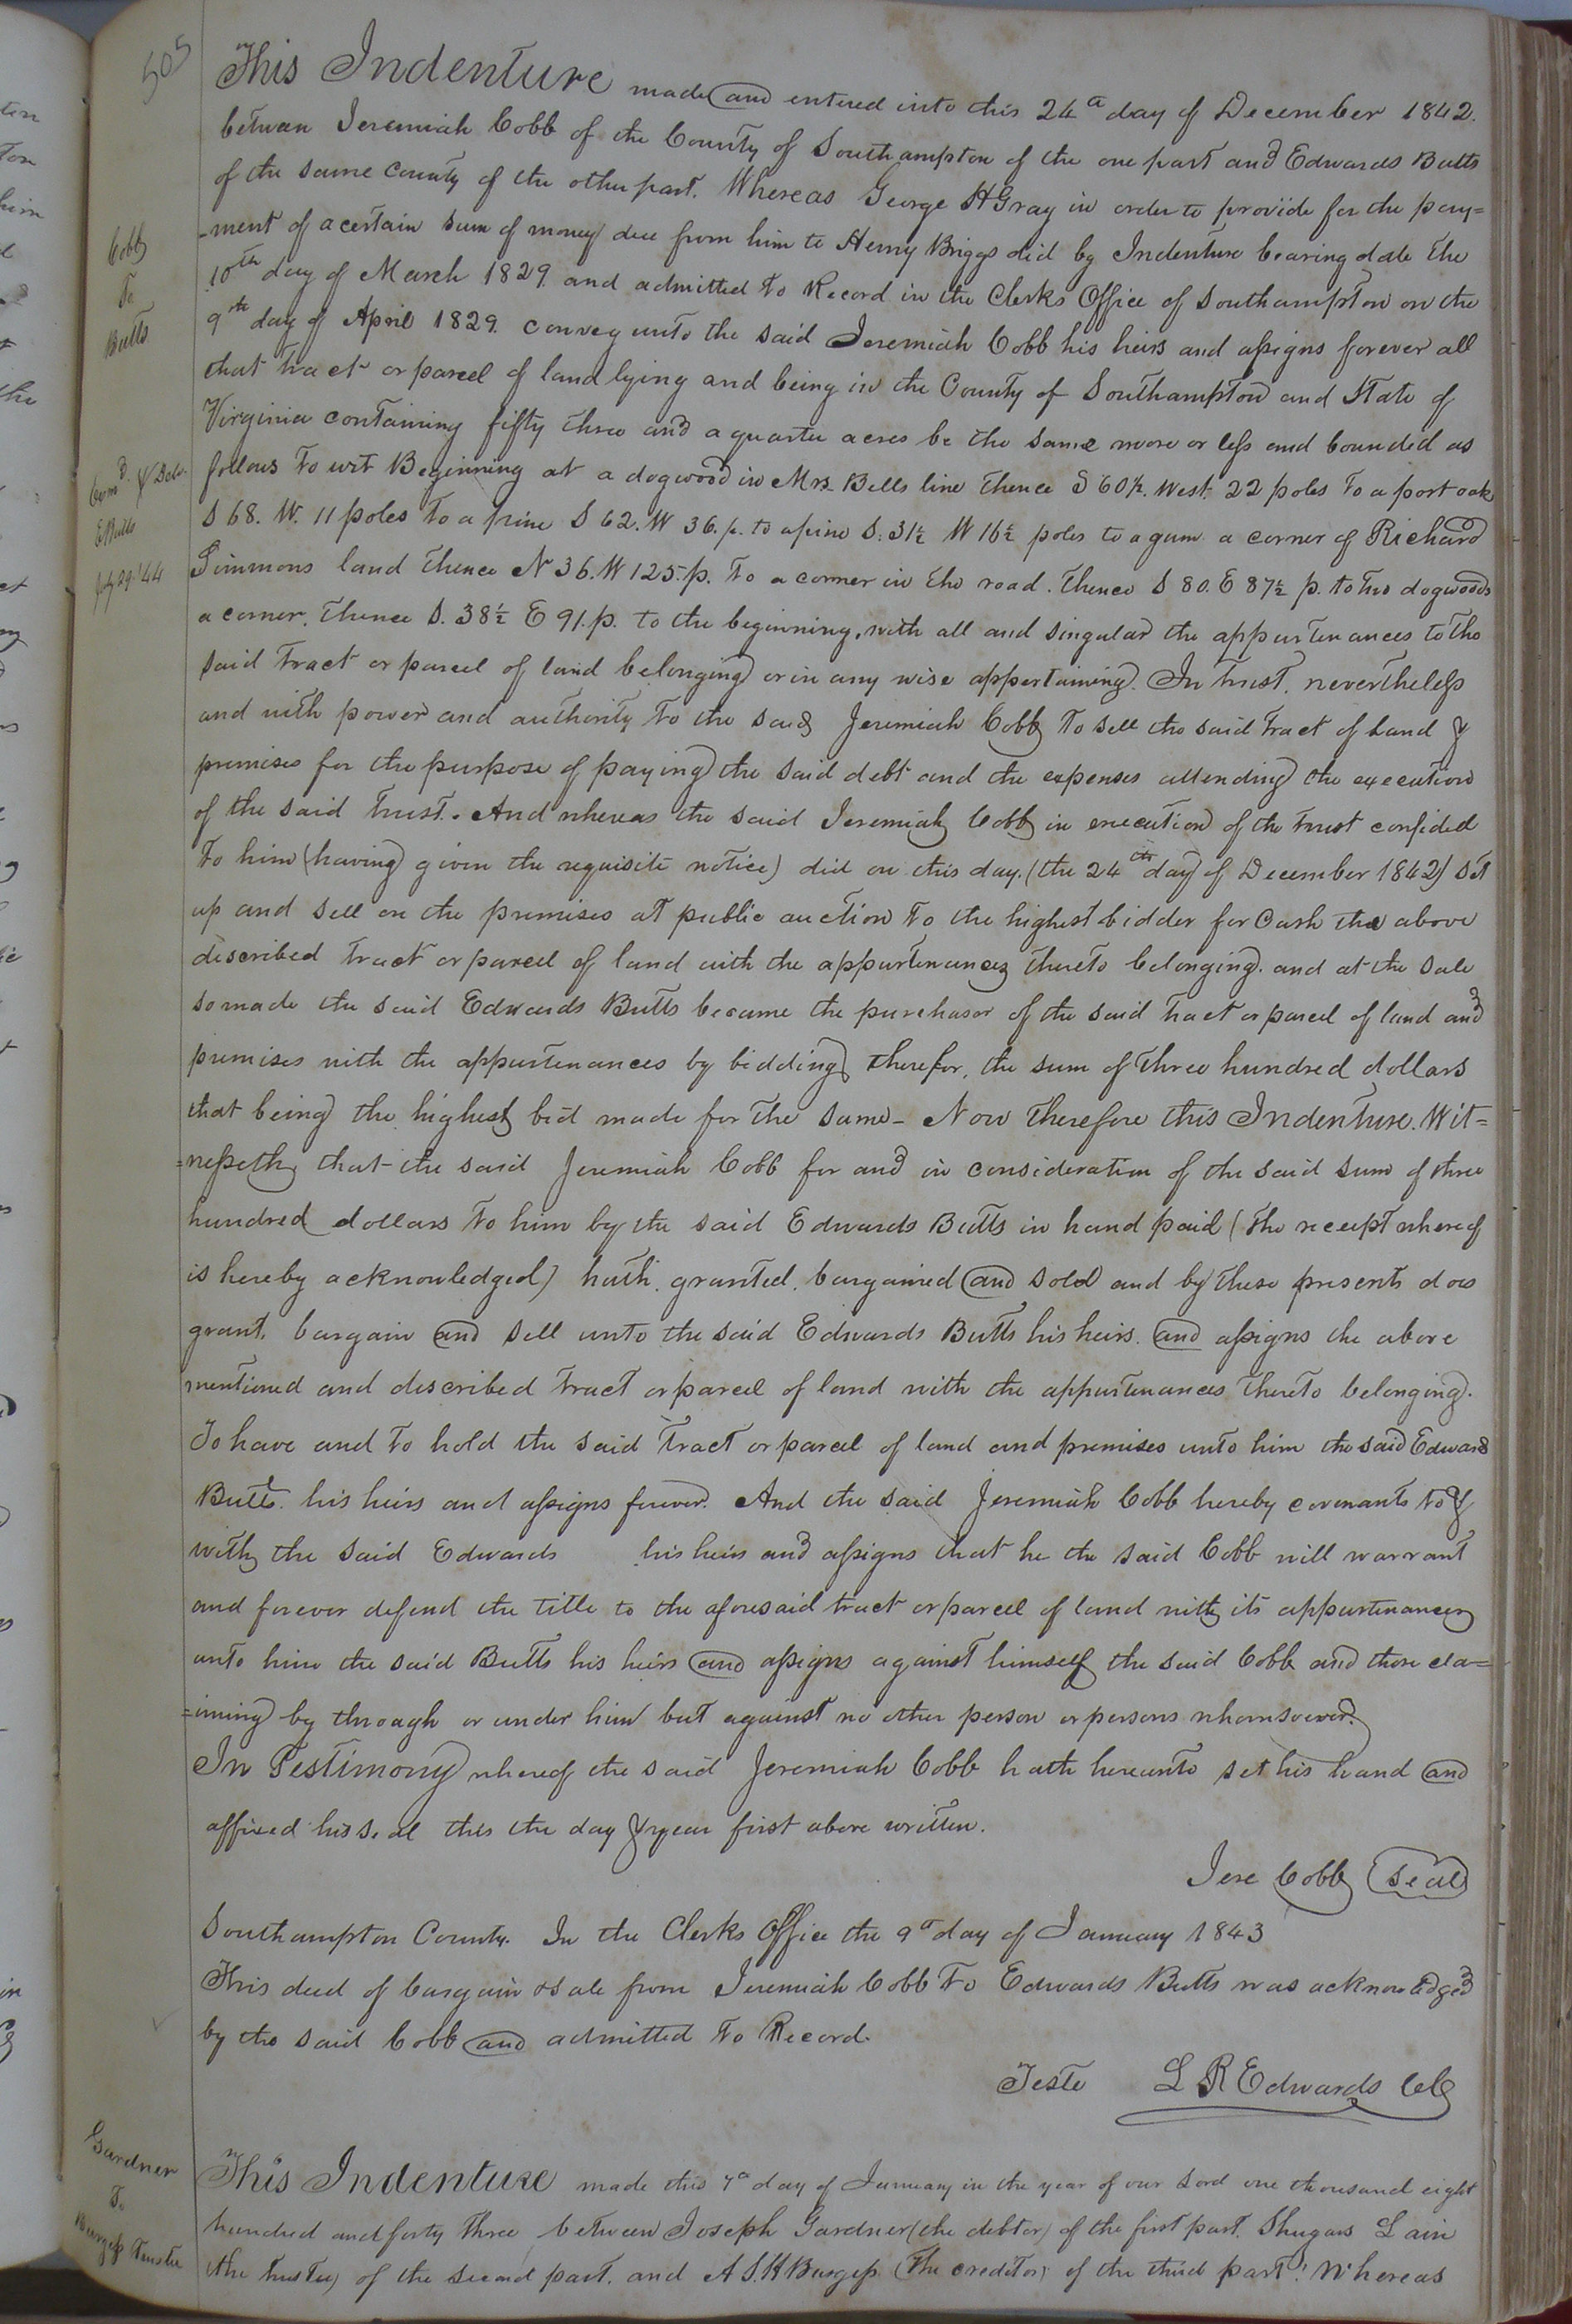 505
This Indenture made and entered into this 24th day of December 1842.
between Jeremiah Cobb of the County of Southampton of the one part and Edwards Butts
of the same County of the other part. Whereas George H Gray in order to provide for the pay=
-ment of a certain sum of money due from him to Henry Briggs did by Indenture bearing date the
10th day of March 1829. and admitted to Record in the Clerks Office of Southampton on the
9th day of April 1829. convey unto the said Jeremiah Cobb his heirs and assigns forever all
that tract or parcel of land lying and being in the County of Southampton and State of
Virginia containing fifty three and a quarter acres be the same more or less and bounded as
follows to wit Beginning at a dogwood in Mrs. Bells line thence S 60½. West. 22 poles to a post oak
S 68. W. 11 poles to a pine S 62. W 36. p. to a pine S. 31½ W 16½ poles to a gum a corner of Richard
Simmons land thence N 36. W 125. p. to a corner in the road. thence S 80. E 87½ p. to two dogwoods
a corner. thence S. 38½ E 91. p. to the beginning. with all and singular the appurtenances to the
said tract or parcel of land belonging or in any wise appertaining. In trust. nevertheless
and with power and authority to the said Jeremiah Cobb to sell the said tract of Land &
premises for the purpose of paying the said debt and the expenses attending the execution
of the said trust. And whereas the said Jeremiah Cobb in execution of the trust confided
to him (having given the requisite notice) did on this day. (the 24th day of December 1842) set
up and sell on the premises at public auction to the highest bidder for Cash the above
described tract or parcel of land with the appurtenances thereto belonging. and at the sale
so made the said Edwards Butts became the purchaser of the said tract or parcel of land and
premises with the appurtenances by bidding therefor, the sum of three hundred dollars
that being the highest bid made for the same- Now therefore this Indenture. Wit=
=nesseth, that the said Jeremiah Cobb for and in consideration of the said sum of three
hundred dollars to him by the said Edwards Butts in hand paid (the receipt whereof
is hereby acknowledged) hath. granted. bargained and sold and by these presents does
grant, bargain and sell unto the said Edwards Butts his heirs. and assigns the above
mentioned and described tract or parcel of land with the appurtenances thereto belonging.
To have and to hold the said tract or parcel of land and premises unto him the said Edwards
Butts. his heirs and assigns forever. And the said Jeremiah Cobb hereby covenants to &
with the said Edwards his heirs and assigns that he the said Cobb will warrant
and forever defend the title to the aforesaid tract or parcel of land with its appurtenances
unto him the said Butts his heirs and assigns against himself the said Cobb and those cla=
=iming by through or under him but against no other person or persons whomsoever.
In Testimony whereof the said Jeremiah Cobb hath hereunto set his hand and
affixed his seal this the day & year first above written.
Jere Cobb Seal
Southampton County. In the Clerks Office the 9th day of January 1843
This deed of bargain & sale from Jeremiah Cobb to Edwards Butts was acknowledged
by the said Cobb and admitted to Record.
Teste L R Edwards CC
This Indenture made this 7th day of January in the year of our Lord one thousand eight
hundred and forty three between Joseph Gardner (the debtor) of the first part. Shugars Lain
(the trustee) of the second part. and A. S. H Burgess (the creditor) of the third part: Whereas
Cobb
To
Butts
Exmd. & Delv.
E Butts
29. '44
Gardner
To
Burgess Trustee